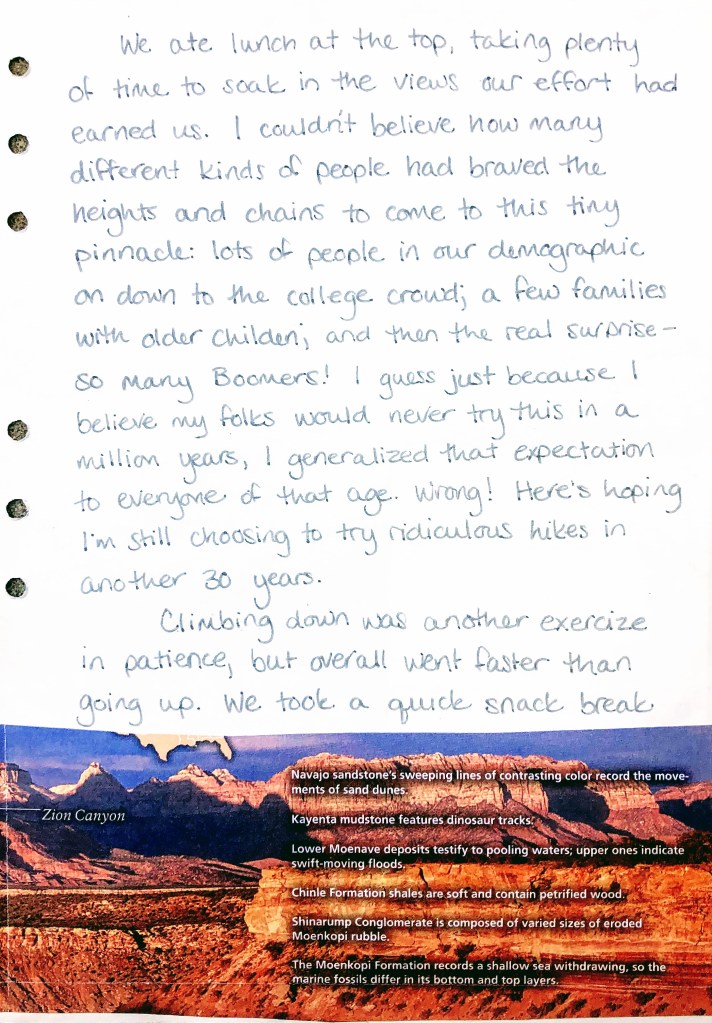 We ate lunch at the top, taking plenty
of time to soak in the views our effort had
earned us. I couldn't believe how many
different kinds of people had braved the
heights and chains to come to this tiny
pinnacle: lots of people in our demographic
on down to the college crowd; a few families
with older childen; and then the real surprise—
so many Boomers! I guess just because I
believe my folks would never try this in a
million years, I generalized that expectation
to everyone of that age. Wrong! Here's hoping
I'm still choosing to try ridiculous hikes in
another 30 years.
Climbing down was another exercize
in patience, but overall went faster than
going up. We took a quick snack break
Zion Canyon
Navajo sandstone's sweeping lines of contrasting color record the move-
ments of sand dunes.
Kayenta mudstone features dinosaur tracks.
Lower Moenave deposits testify to pooling waters; upper ones indicate
swift-moving floods.
Chinle Formation shales are soft and contain petrified wood.
Shinarump Conglomerate is composed of varied sizes of eroded
Moenkopi rubble.
The Moenkopi Formation records a shallow sea withdrawing, so the
marine fossils differ in its bottom and top layers.